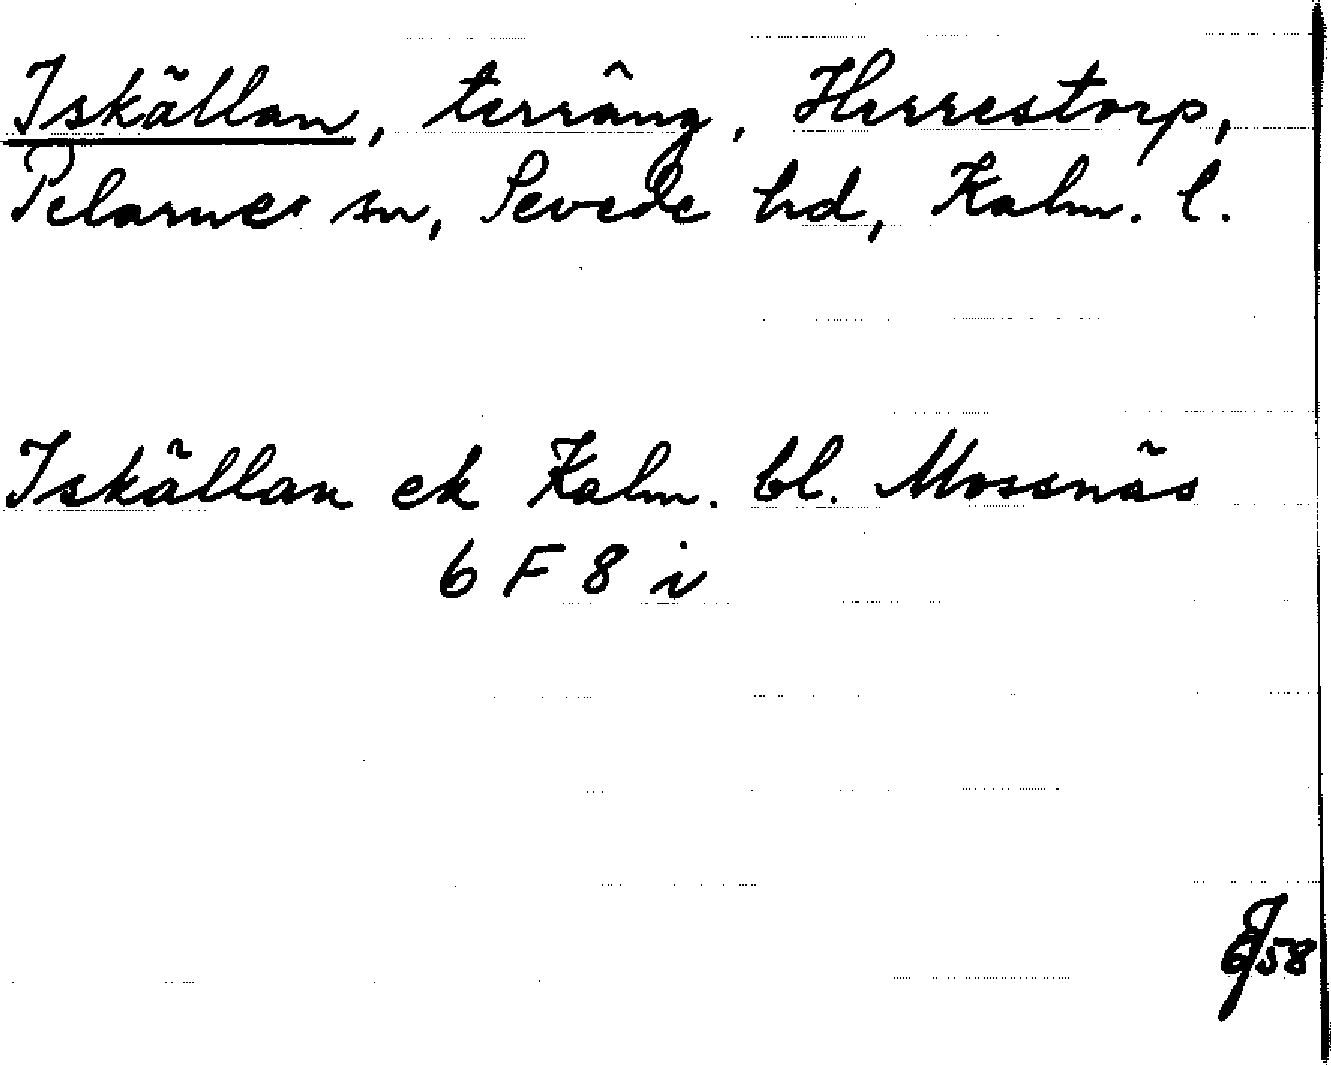 Iskällan, terräng, Herrestorp,
Pelarne sn, Sevede hd, Kalm. l.
Iskällan ek Kalm. bl. Mossnäs
6 F 8 i
58